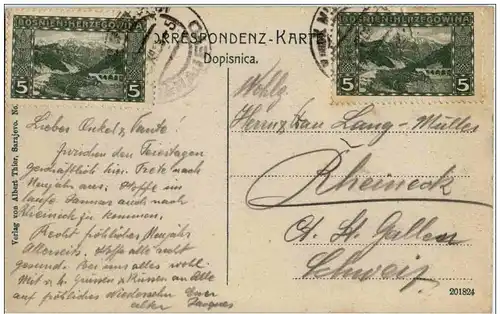 BOSNIEN-HERZEGOWINA
5 5
BOSNIEN-HERZEGOWINA
5 5
CORRESPONDENZ-KARTE
Dopisnica.
Verlag von Albert Thier, Sarajevo. No.
Lieber Onkel & Tante!
zwischen den Feiertagen
geschäftlich hier. Trete nach
Neujahr aus. Hoffe im
laufe Januar auch nach
Rheineck zu kommen.
Recht fröhliches Neujahr
Allerseits. Hoffe alle recht
gesund. Bei uns alles wohl.
Mit Grüssen & Küssen an Alle
auf fröhliches Wiedersehn Euer
alter Jacques
Wohlg.
Herrn & Frau Lang-Müller
Rheineck
Ct. St. Gallen
Schweiz
201824